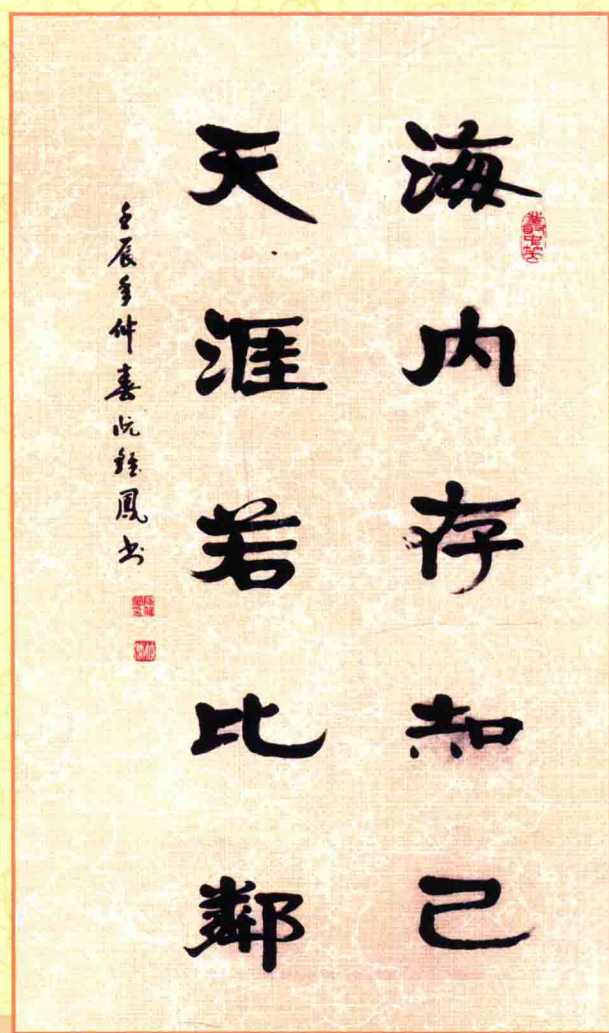 海内存知己
天涯若比鄰
壬辰年仲春阮鍾鳳书